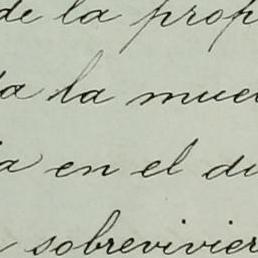 de la prop
a la mue
a en el du
sobrevivier